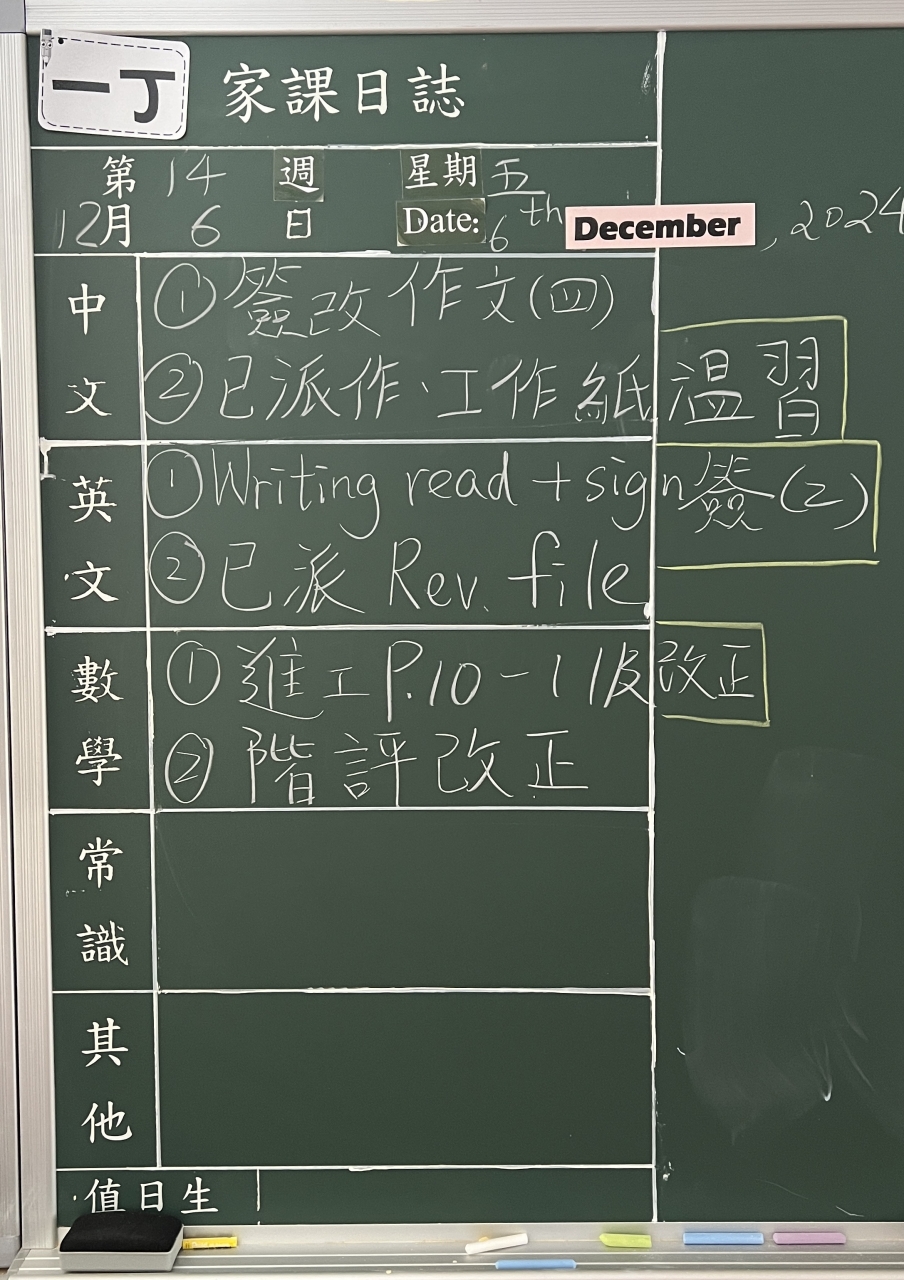 一丁 家課日誌
第 14 週 星期 五
12月 6 日 Date: 6th December, 2024
中文
①簽改作文(四)
②已派作、工作紙溫習
英文
①Writing read + sign簽(2)
②已派 Rev. file
數學
①進工P.10-11及改正
②階評改正
常識
其他
值日生